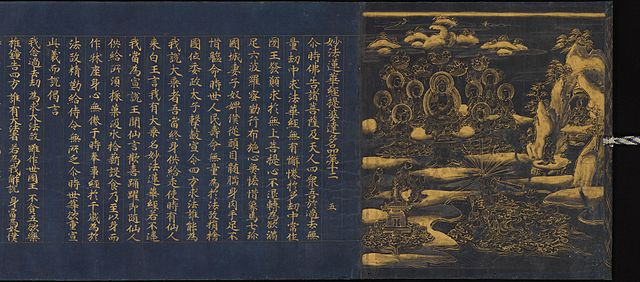 妙法蓮華經提婆達多品第十二　五
尒時佛告諸菩薩及天人四衆吾於過去無
量劫中求法華經無有懈惓於多劫中常作
國王發願求於無上菩提心不退轉為欲滿
足六波羅蜜勤行布施心無悋惜象馬七珎
國城妻子奴婢僕從頭目髓腦身肉手足不
惜軀命時世人民壽命無量為於法故捐捨
國位委政太子擊皷宣令四方求法誰能為
我說大乗者吾當終身供給走使時有仙人
来白王言我有大乗名妙法蓮華經若不違
我當為宣說王聞仙言歡喜踊躍即隨仙人
供給所須採菓汲水拾薪設食乃至以身而
作牀座身心無惓于時奉事經於千歲為於
法故精勤給侍令無所乏尒時世尊欲重宣
此義而說偈言
我念過去劫 為求大法故 雖作世國王 不貪五欲樂
椎鐘告四方 誰有大法者 若為我解說 身當為奴僕